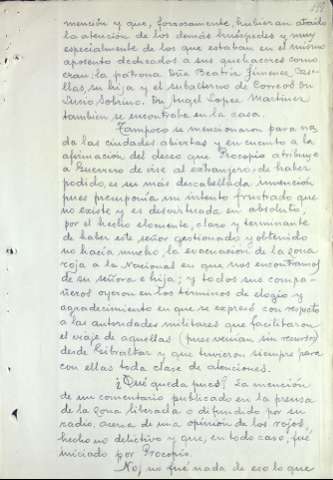 mención y que, forzosamente, hubieran atraído
la atención de los demás huéspedes y muy
especialmente de los que estaban en el mismo
aposento dedicados a sus quehaceres como
eran: la patrona Dña Beatriz Jimenez Case-
llas, su hija y el subalterno de Correos Don
Lucio Sobrino. Dn Angel Lopez Martinez
tambien se encontraba en la casa.
Tampoco se mencionaron para na-
da las ciudades abiertas y en cuanto a la
afirmación del deseo que Procopio atribuye
a Guerrero de irse al extranjero, de haber
podido, es su más descabellada invención
pues presuponía un intento frustrado que
no existe y es desvirtuada en absoluto,
por el hecho elemente, claro y terminante
de haber este señor gestionado y obtenido
no hacía mucho, la evacuación de la zona
roja a la Nacional en que nos encontramos
de su señora e hija; y todos sus compa-
ñeros oyeron en los términos de elogio y
agradecimiento en que se expresó con respecto
a las autoridades militares que facilitaron
el viaje de aquellas (pues venían sin recursos)
desde Gibraltar y que tuvieron siempre para
con ellas toda clase de atenciones.
¿Qué queda pues? La mención
de un comentario publicado en la prensa
de la zona liberada o difundido por su
radio, acerca de una opinión de los rojos,
hecho no delictivo y que, en todo caso, fué
iniciado por Procopio.
No, no fué nada de eso lo que